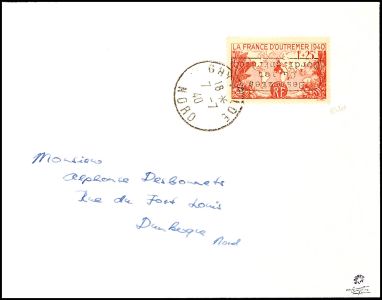 LA FRANCE D'OUTREMER 1940
1+25
GRAVELINES
18 *
7 - 7
40
NORD
Monsieur
Alphonse Desbonnets
Rue du Fort Louis
Dunkerque
Nord